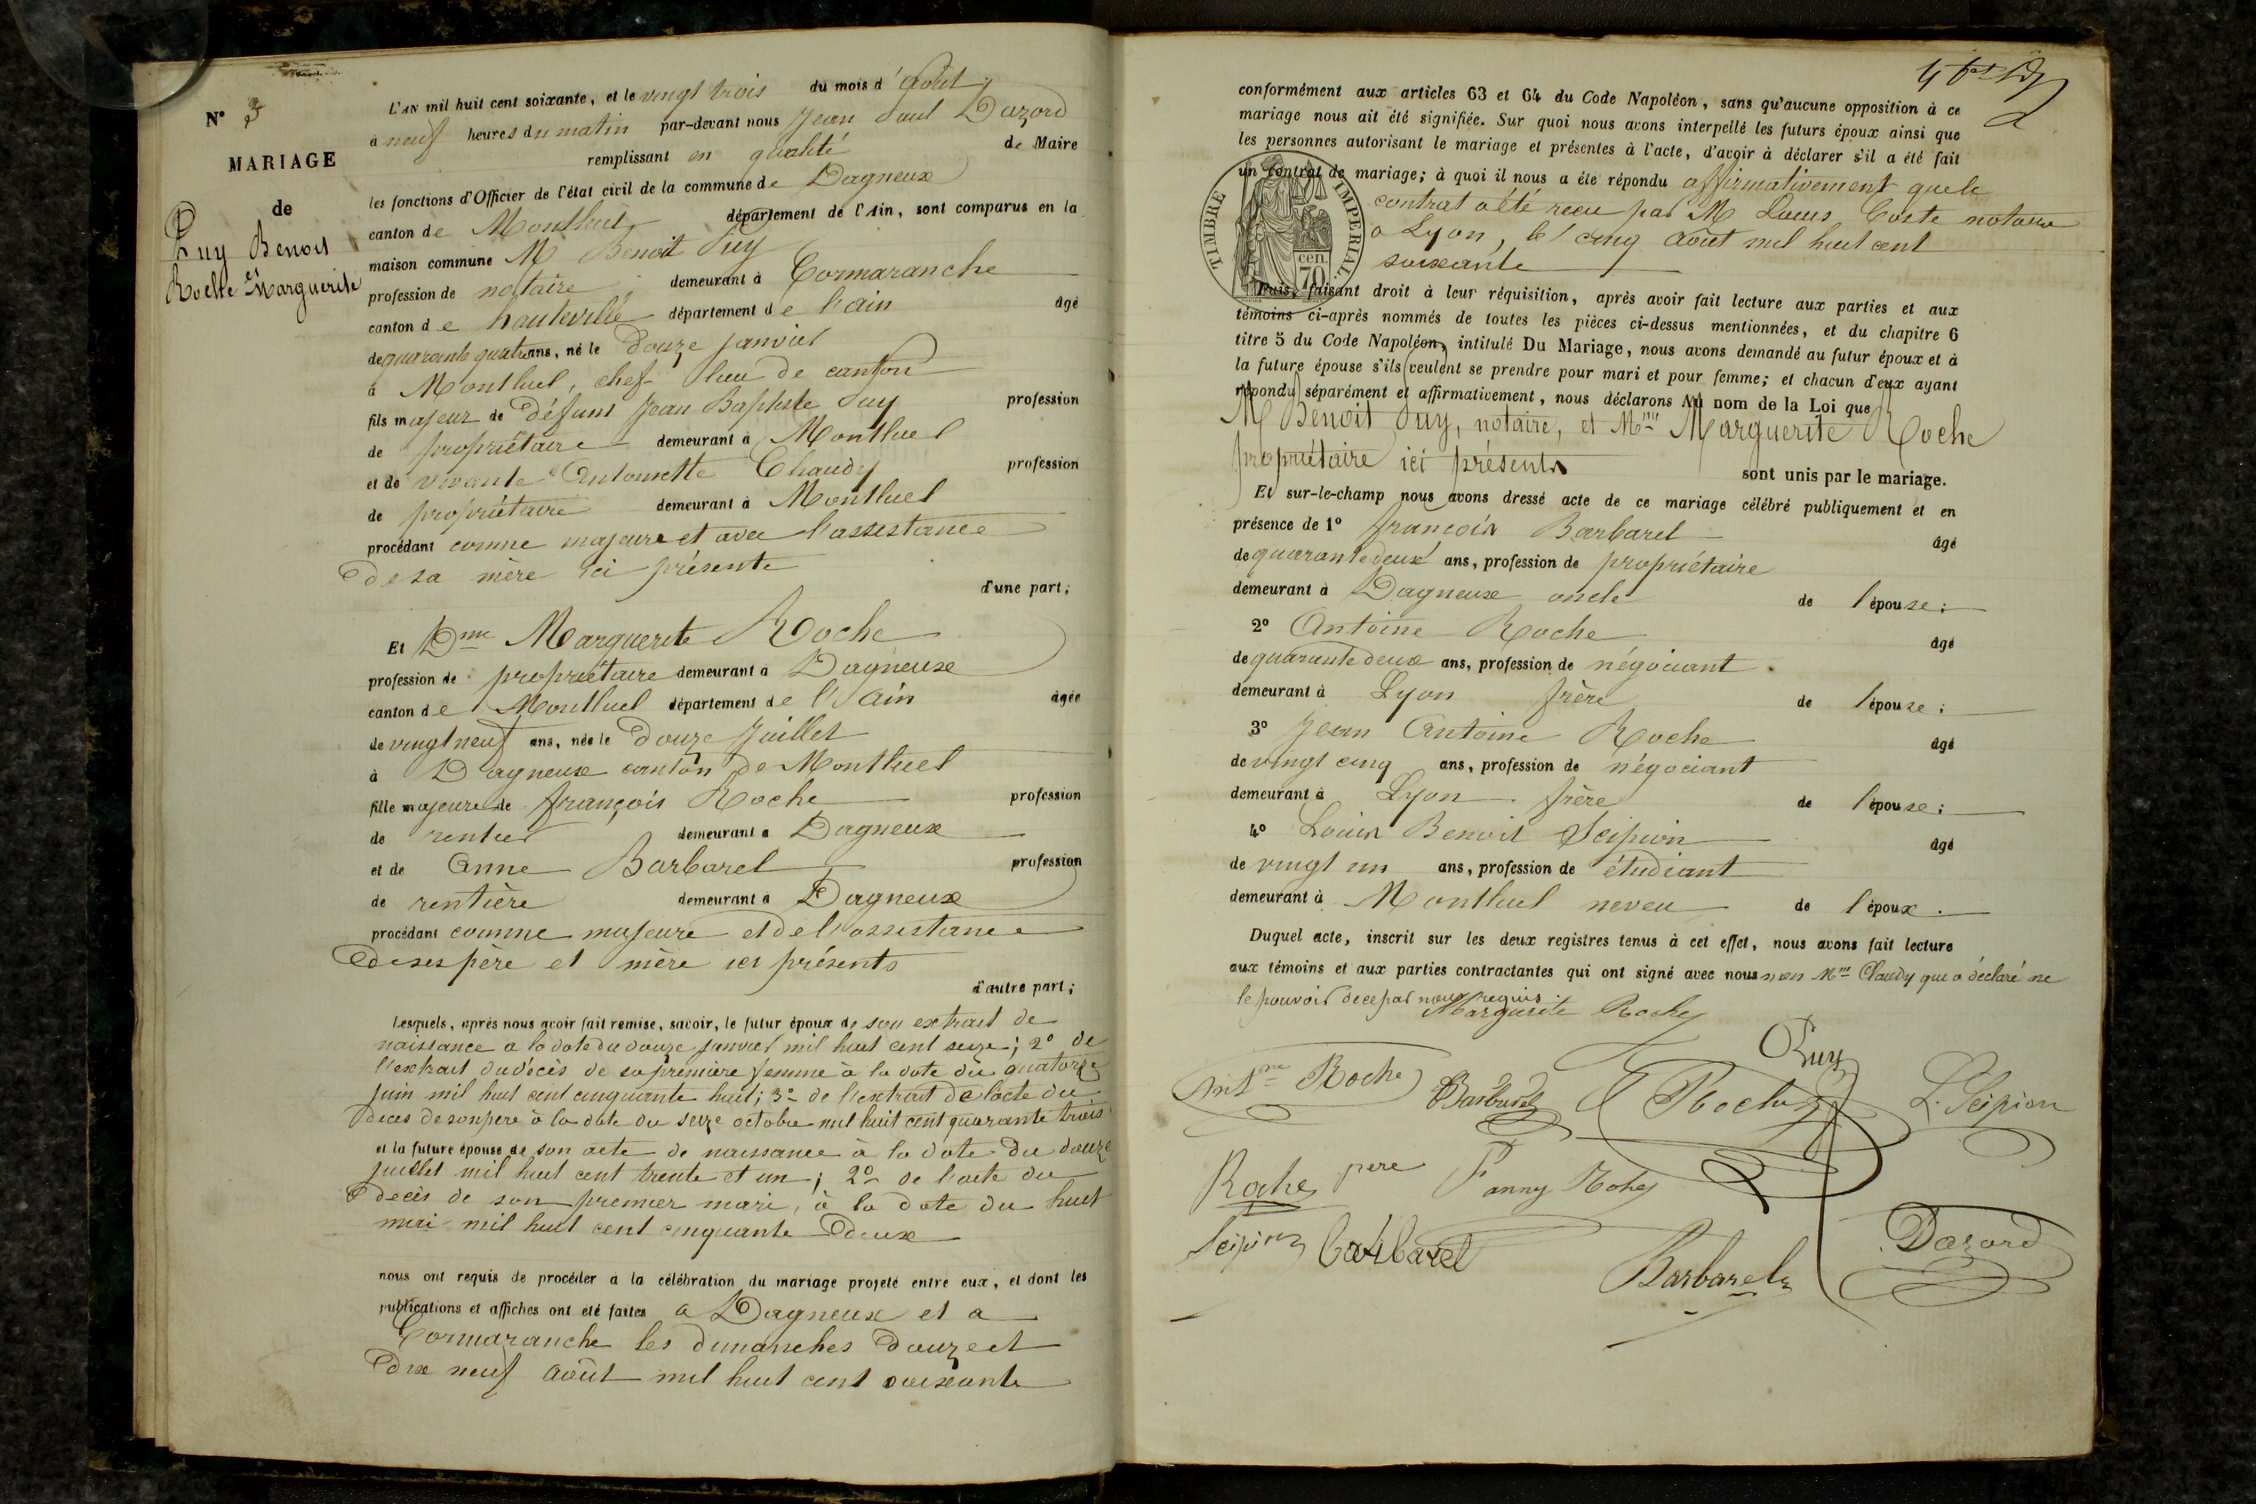 N° 3
MARIAGE
de
Puy Benoit
et
Roche Marguerite
L'AN mil huit cent soixante, et le vingt trois du mois d'août
à neuf heures du matin par-devant nous Jean Paul Dazord
remplissant en qualité de Maire
les fonctions d'Officier de l'état civil de la commune de Dagneux
canton de Montluel département de l'Ain, sont comparus en la
maison commune M Benoit Puy
profession de notaire demeurant à Cormaranche
canton de hauteville département de l'ain âgé
de quarante quatre ans, né le Douze janvier
à Montluel, chef lieu de canton
fils majeur de Défunt Jean Baptiste Puy profession
de propriétaire demeurant à Montluel
et de vivante Antoinette Chaudy profession
de propriétaire demeurant à Montluel
procédant comme majeure et avec l'assistance
de sa mère ici présente
d'une part;
Et Dme Marguerite Roche
profession de propriétaire demeurant à Dagneux
canton de Montluel département de l'Ain âgée
de vingt neuf ans, née le Douze Juillet
à Dagneux canton de Montluel
fille majeure de françois Roche profession
de rentier demeurant à Dagneux
et de Anne Barbarel profession
de rentière demeurant à Dagneux
procédant comme majeure et de l'assistance
de ses père et mère ici présents
d'autre part;
Lesquels, après nous avoir fait remise, savoir, le futur époux de son extrait de
naissance a la date du douze janvier mil huit cent seize; 2° de
l'extrait du décès de sa première femme à la date du quatorze
juin mil huit cent cinquante huit; 3° de l'extrait de l'acte du
décès de son père à la date du seize octobre mil huit cent quarante trois
et la future épouse de son acte de naissance à la date du douze
juillet mil huit cent trente et un; 2° de l'acte du
décès de son premier mari, à la date du huit
mai mil huit cent cinquante deux
nous ont requis de procéder à la célébration du mariage projeté entre eux, et dont les
publications et affiches ont été faites a Dagneux et a
Cormaranche les dimanches douze et
dix neuf août mil huit cent soixante
conformément aux articles 63 et 64 du Code Napoléon, sans qu'aucune opposition à ce
mariage nous ait été signifiée. Sur quoi nous avons interpellé les futurs époux ainsi que
les personnes autorisant le mariage et présentes à l'acte, d'avoir à déclarer s'il a été fait
un contrat de mariage; à quoi il nous a été répondu affirmativement que le
contrat a été reçu par M Coste notaire
a Lyon, le cinq août mil huit cent
soixante
TIMBRE IMPÉRIAL
70 cen.
Puis, faisant droit à leur réquisition, après avoir fait lecture aux parties et aux
témoins ci-après nommés de toutes les pièces ci-dessus mentionnées, et du chapitre 6
titre 5 du Code Napoléon, intitulé Du Mariage, nous avons demandé au futur époux et à
la future épouse s'ils veulent se prendre pour mari et pour femme; et chacun d'eux ayant
répondu séparément et affirmativement, nous déclarons au nom de la Loi que
M Benoit Puy, notaire, et Mme Marguerite Roche
propriétaire ici présents sont unis par le mariage.
Et sur-le-champ nous avons dressé acte de ce mariage célébré publiquement et en
présence de 1° françois Barbarel âgé
de quarante deux ans, profession de propriétaire
demeurant à Dagneux oncle de l'épouse;
2° Antoine Roche âgé
de quarante deux ans, profession de négociant
demeurant à Lyon frère de l'épouse;
3° Jean Antoine Roche âgé
de vingt cinq ans, profession de négociant
demeurant à Lyon frère de l'épouse;
4° Louis Benoit Scipion âgé
de vingt un ans, profession de étudiant
demeurant à Montluel neveu de l'époux.
Duquel acte, inscrit sur les deux registres tenus à cet effet, nous avons fait lecture
aux témoins et aux parties contractantes qui ont signé avec nous non Me Chaudy qui a déclaré ne
le pouvoir de ce par nous requis.
Marguerite Roche
Puy
Ant Roche
Barbarel
Roche
L. Scipion
Roche père
Fanny Roche
Scipion
Barbarel
Barbarel
Dazord